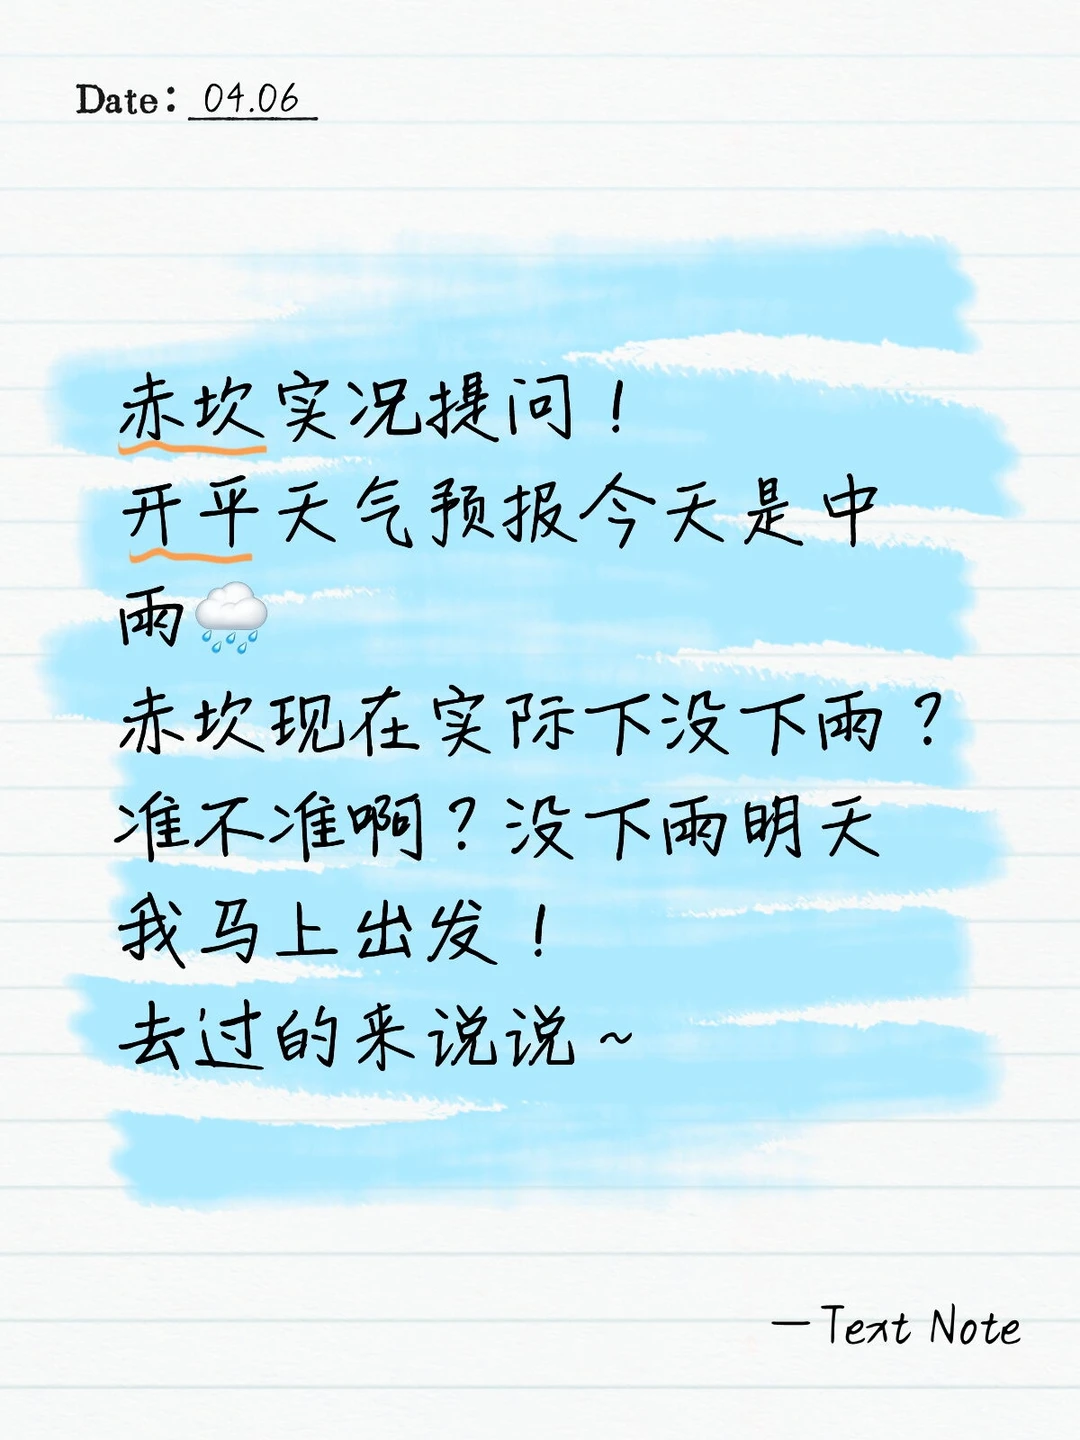 Date: 04.06
赤坎实况提问！
开平天气预报今天是中
雨🌧
赤坎现在实际下没下雨？
准不准啊？没下雨明天
我马上出发！
去过的来说说～
—Text Note